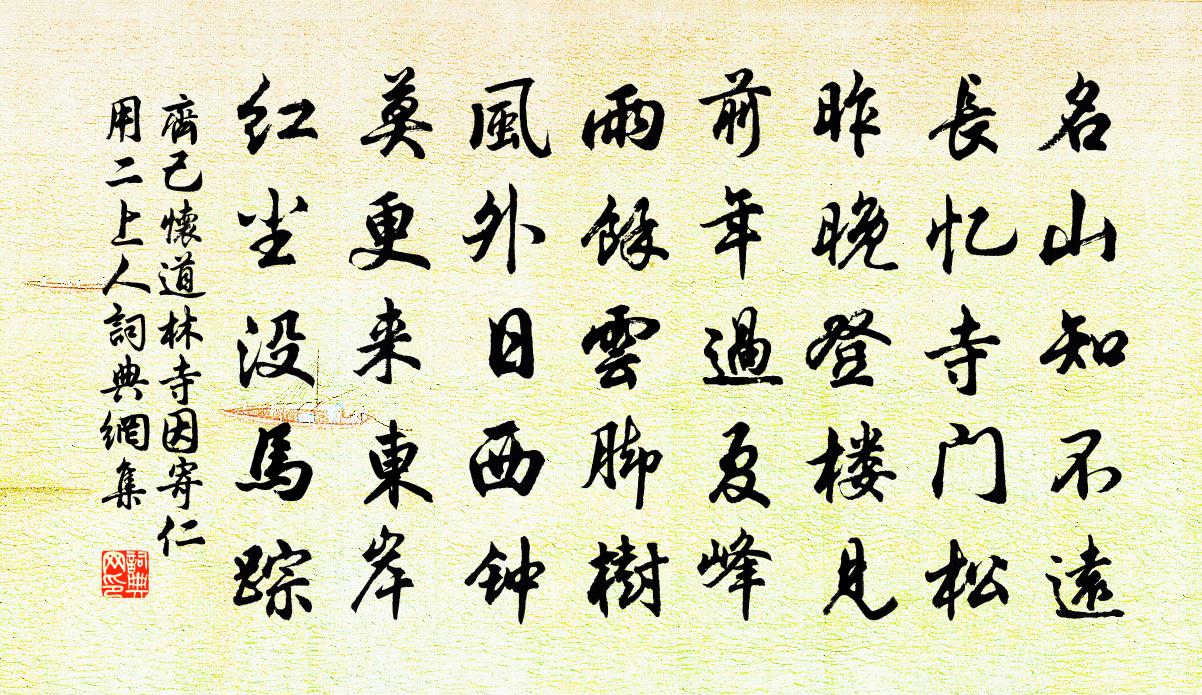 名山知不遠
長忆寺門松
昨晚登楼見
前年過夏峰
雨餘雲脚樹
風外日西钟
莫更来東岸
红尘没馬踪
齊己懷道林寺因寄仁
用二上人詞典網集
詞典网印